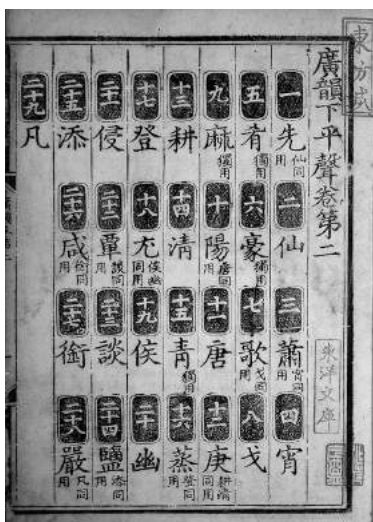 廣韻下平聲卷第二
一先仙同用 二仙 三蕭宵同用 四宵
五肴獨用 六豪獨用 七歌戈同用 八戈
九麻獨用 十陽唐同用 十一唐 十二庚耕清同用
十三耕 十四清 十五青獨用 十六蒸登同用
十七登 十八尤侯幽同用 十九侯 二十幽
二十一侵 二十二覃談同用 二十三談 二十四鹽添同用
二十五添 二十六咸銜同用 二十七銜 二十八嚴凡同用
二十九凡
東洋文庫